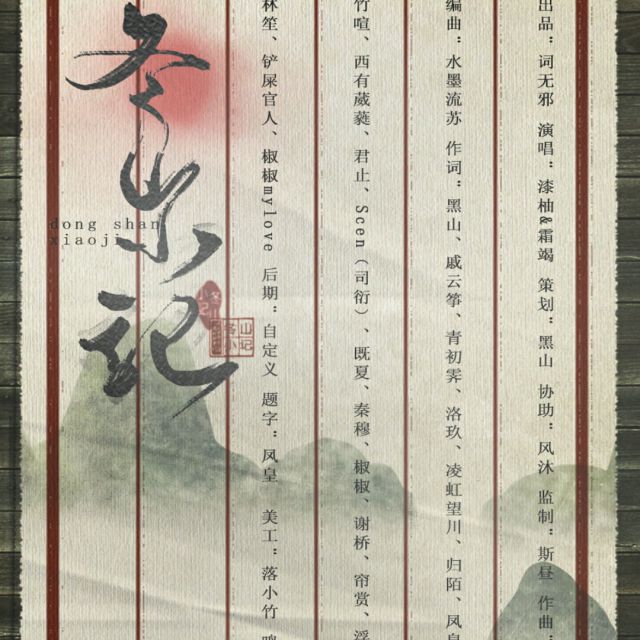 出品：词无邪 演唱：漆柚&霜竭 策划：黑山 协助：风沐 监制：斯昼 作曲：
编曲：水墨流苏 作词：黑山、戚云筝、青初霁、洛玖、凌虹望川、归陌、凤皇
竹喧、西有葳蕤、君止、Scen（司衍）、既夏、秦穆、椒椒、谢桥、帘赏、浮
林笙、铲屎官人、椒椒mylove 后期：自定义 题字：凤皇 美工：落小竹
冬山小记
dong shan
xiaoji
冬山
小记